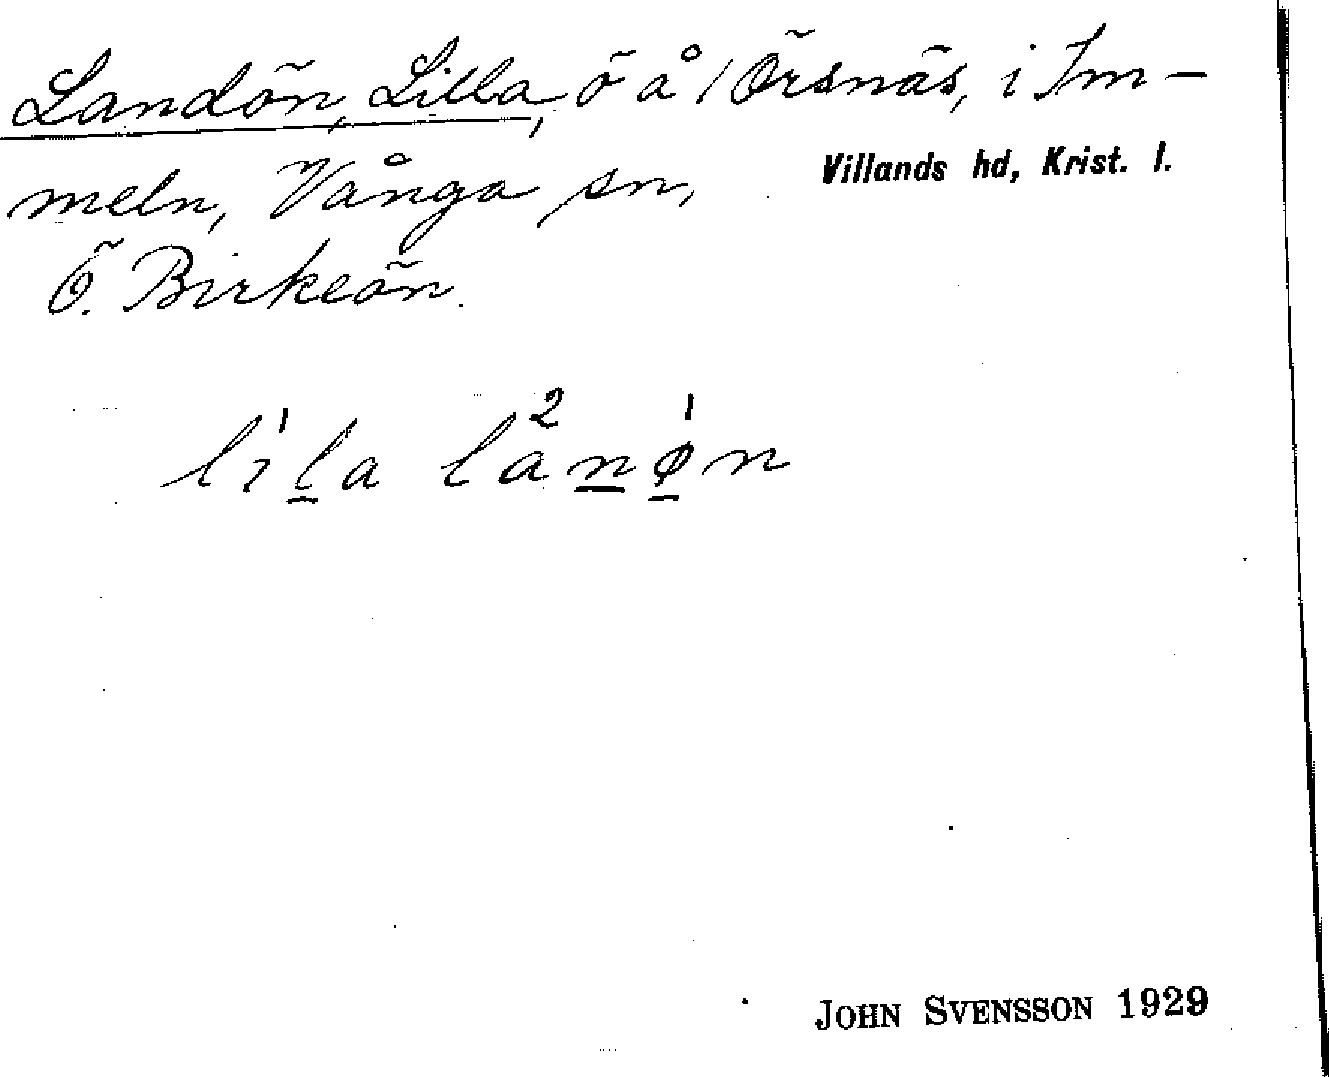 Landön, Lilla, ö å /Örsnäs, i Im-
meln, Vånga sn, Villands hd, Krist. l.
Ö. Birkeön.
lila lånøn
JOHN SVENSSON 1929